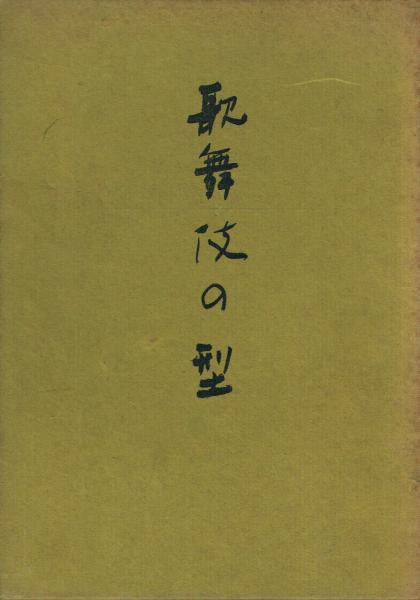 歌舞伎の型